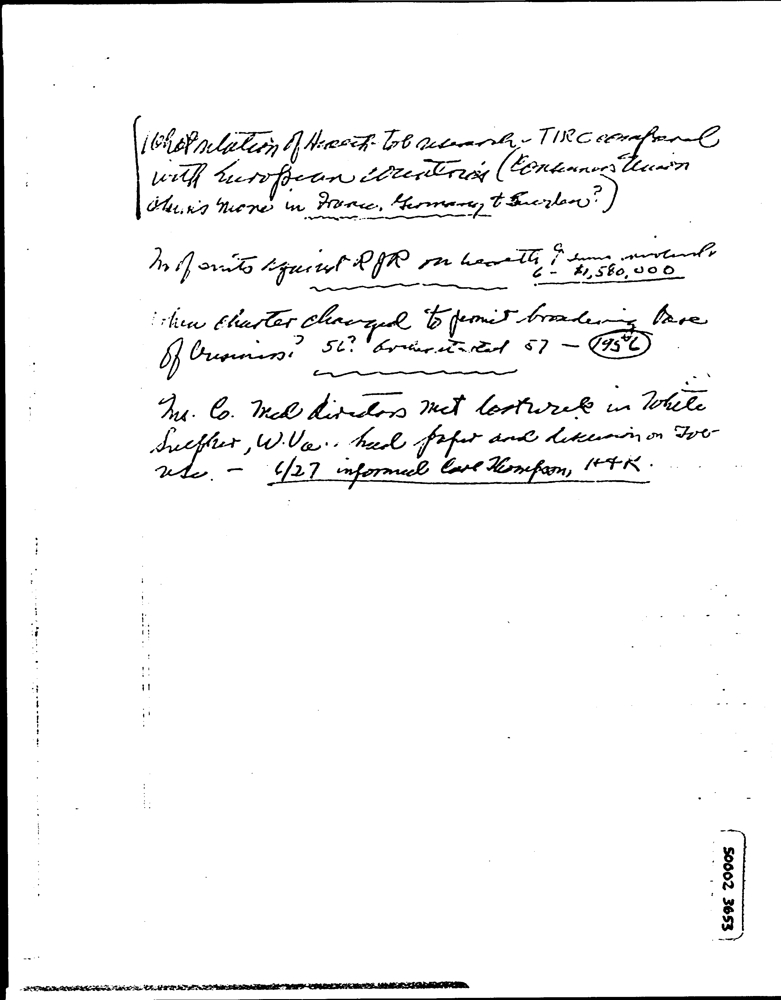 What relation of Health-Tob research - TIRC compared
with European countries (
there is more in France, Germany, & Sweden?)
No of suits against RJR on health, & sums
6 - $1,580,000
When charter changed to permit broadening base
of business? 56? 57 - 1956
Ins. Co. Med directors met last week in White
Sulpher, W. Va.. had paper and discussion on Tob
use. - 6/27 informed Carl Thompson, H+K.
50002 3653